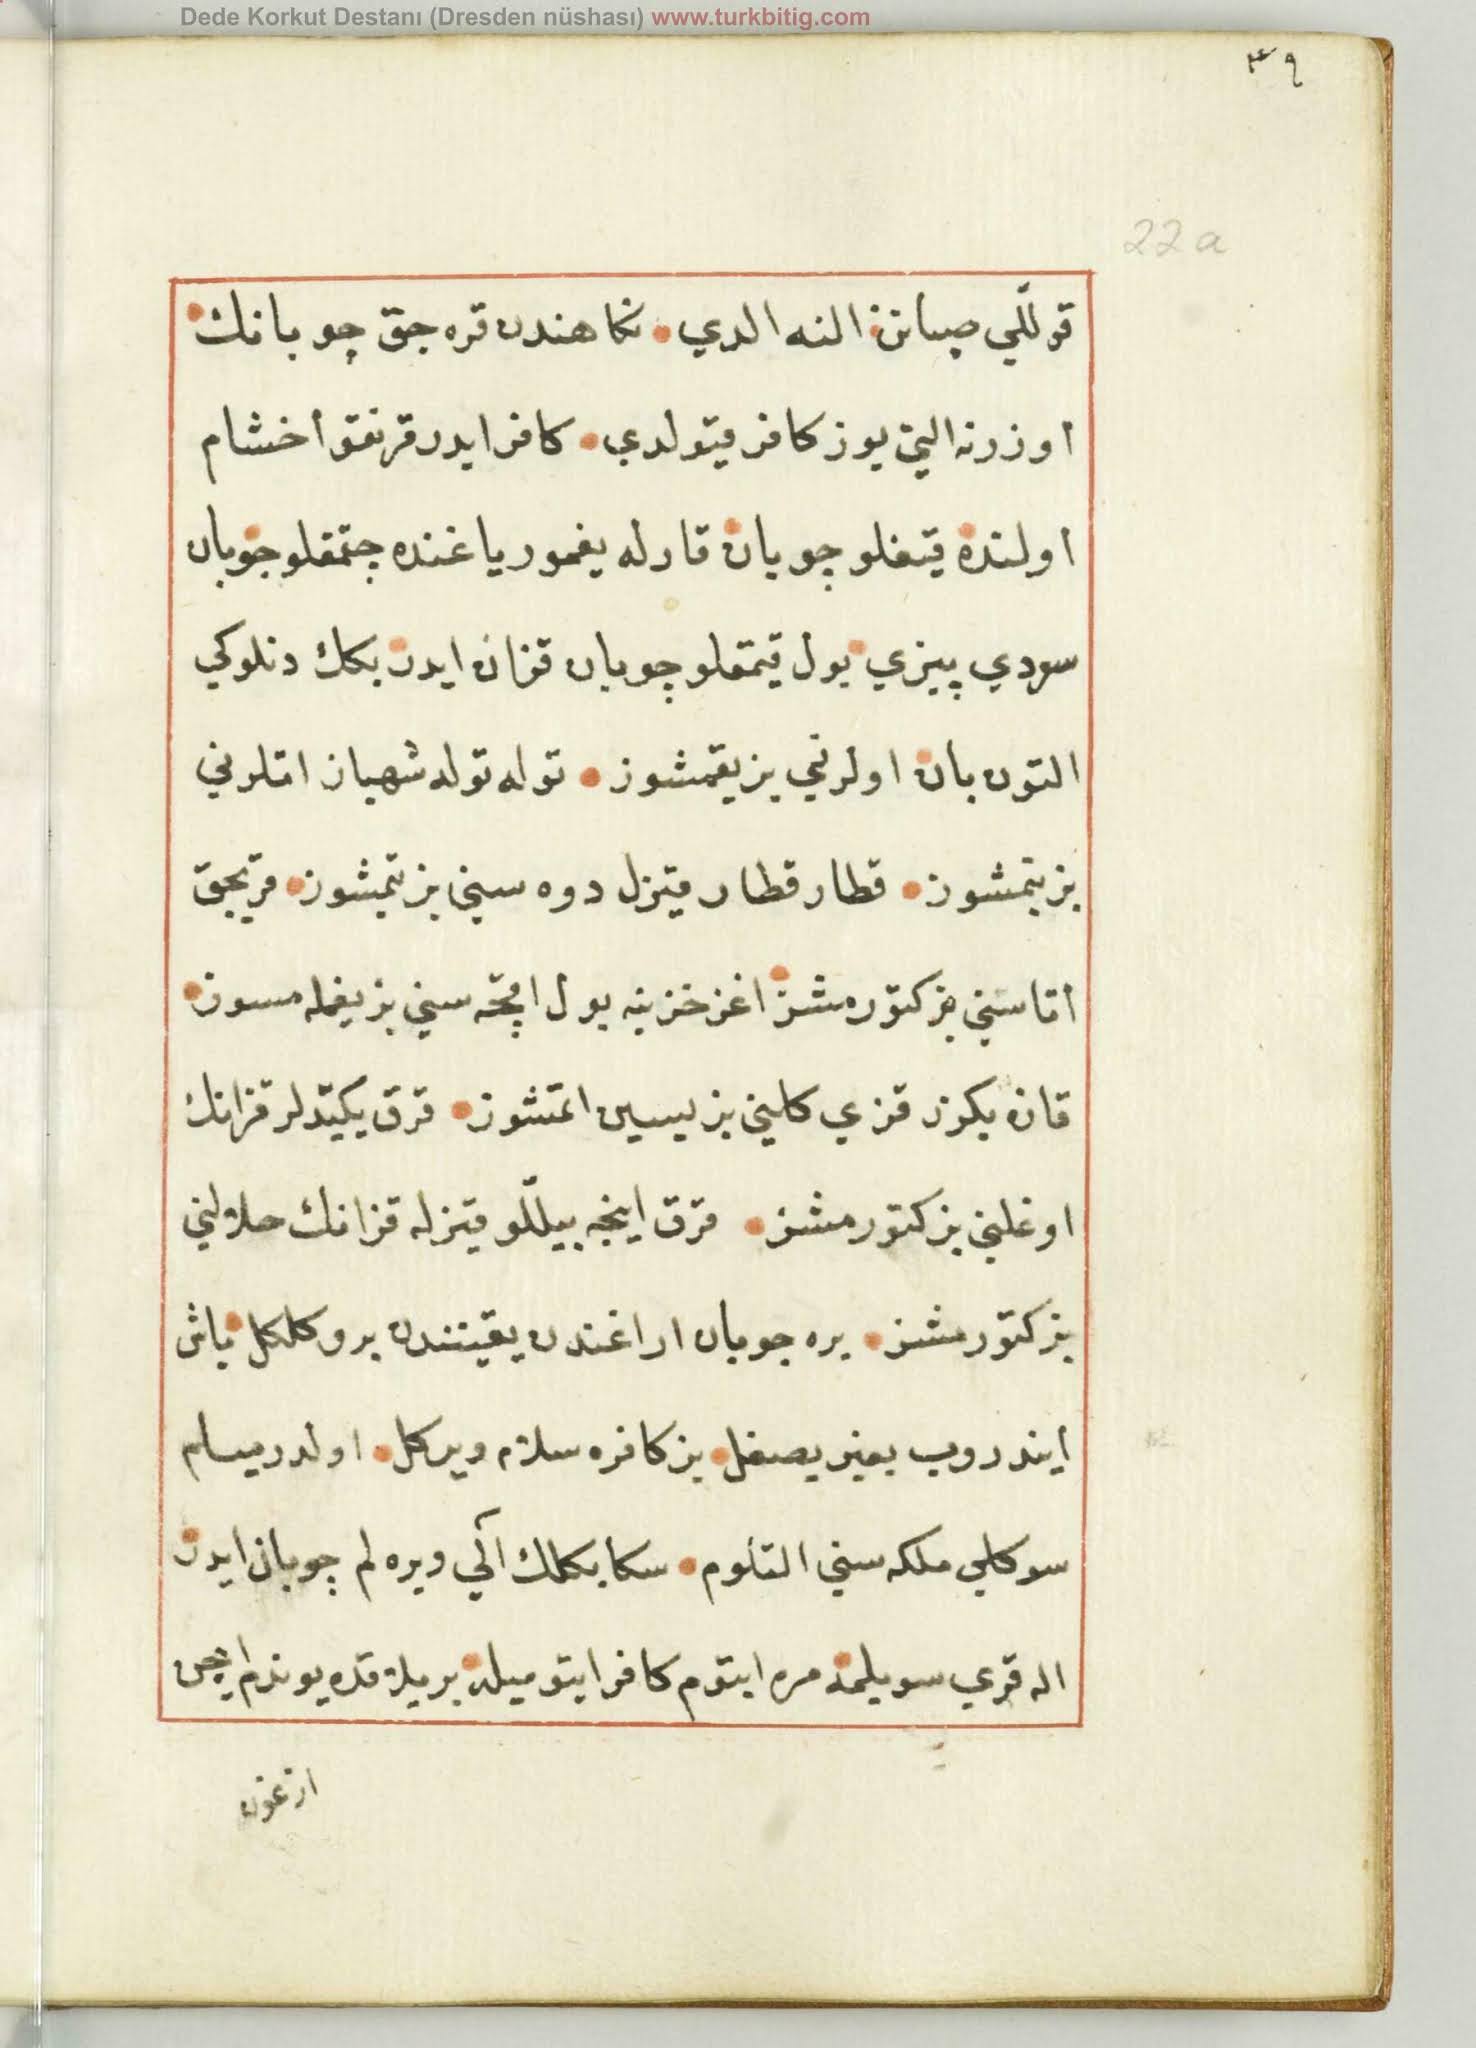 Dede Korkut Destanı (Dresden nüshası) www.turkbitig.com
٣٩
22a
قوللي صپانن النه الدي نكاهندن قره جق چوبانك
اوزرنه التي يوز كافر قيتولدي كافر ايدر قرنقو اخشام
اولنده قيغلو چوبان قارله يغمور ياغنده چقمقلو چوبان
سودي پيزي بول قيمقلو چوبان قزان ايدن بكك دنلوكي
التون بان اولرني بز يقمشوز توله توله شهباز اتلرني
بز بنمشوز قطار قطار قيزل دوه سني بز يتمشوز قريجق
اناسني بز كتورمشز اغز خزينه بول اقچه سني بز يغمله مسوز
قازه بكزر قزي كليني بز يسير اتمشوز قرق يكيتدلر قزانك
اوغلني بز كتورمشز قرق اينجه بيللو قيزله قزانك حلالني
بز كتورمشز بره چوبان اراغندن يقينندن برو كلكل باش
ايندروب بغير بصغل بز كافره سلام ويركل اولدرميه لم
سوكلي ملكه سني التلوم سكا بكلك آلي ويره لم چوبان ايدن
اله قري سويلمه مره ايتوم كافر ايتوميله بر يلاقده يوندم ايچن
ازغون